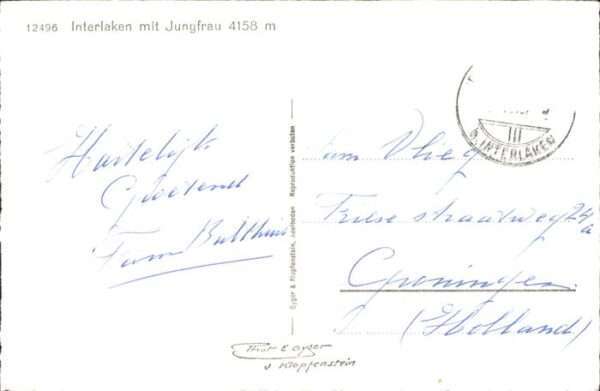 12496 Interlaken mit Jungfrau 4158 m
Hartelijk
Groetend
Fam Bulthuis
Gyger & Klopfenstein, Adelboden Reproduktion verboten
III
B. INTERLAKEN
Fam Vlieg
Friese straatweg 24
a
Groningen
(Holland)
Phot E Gyger
u Klopfenstein